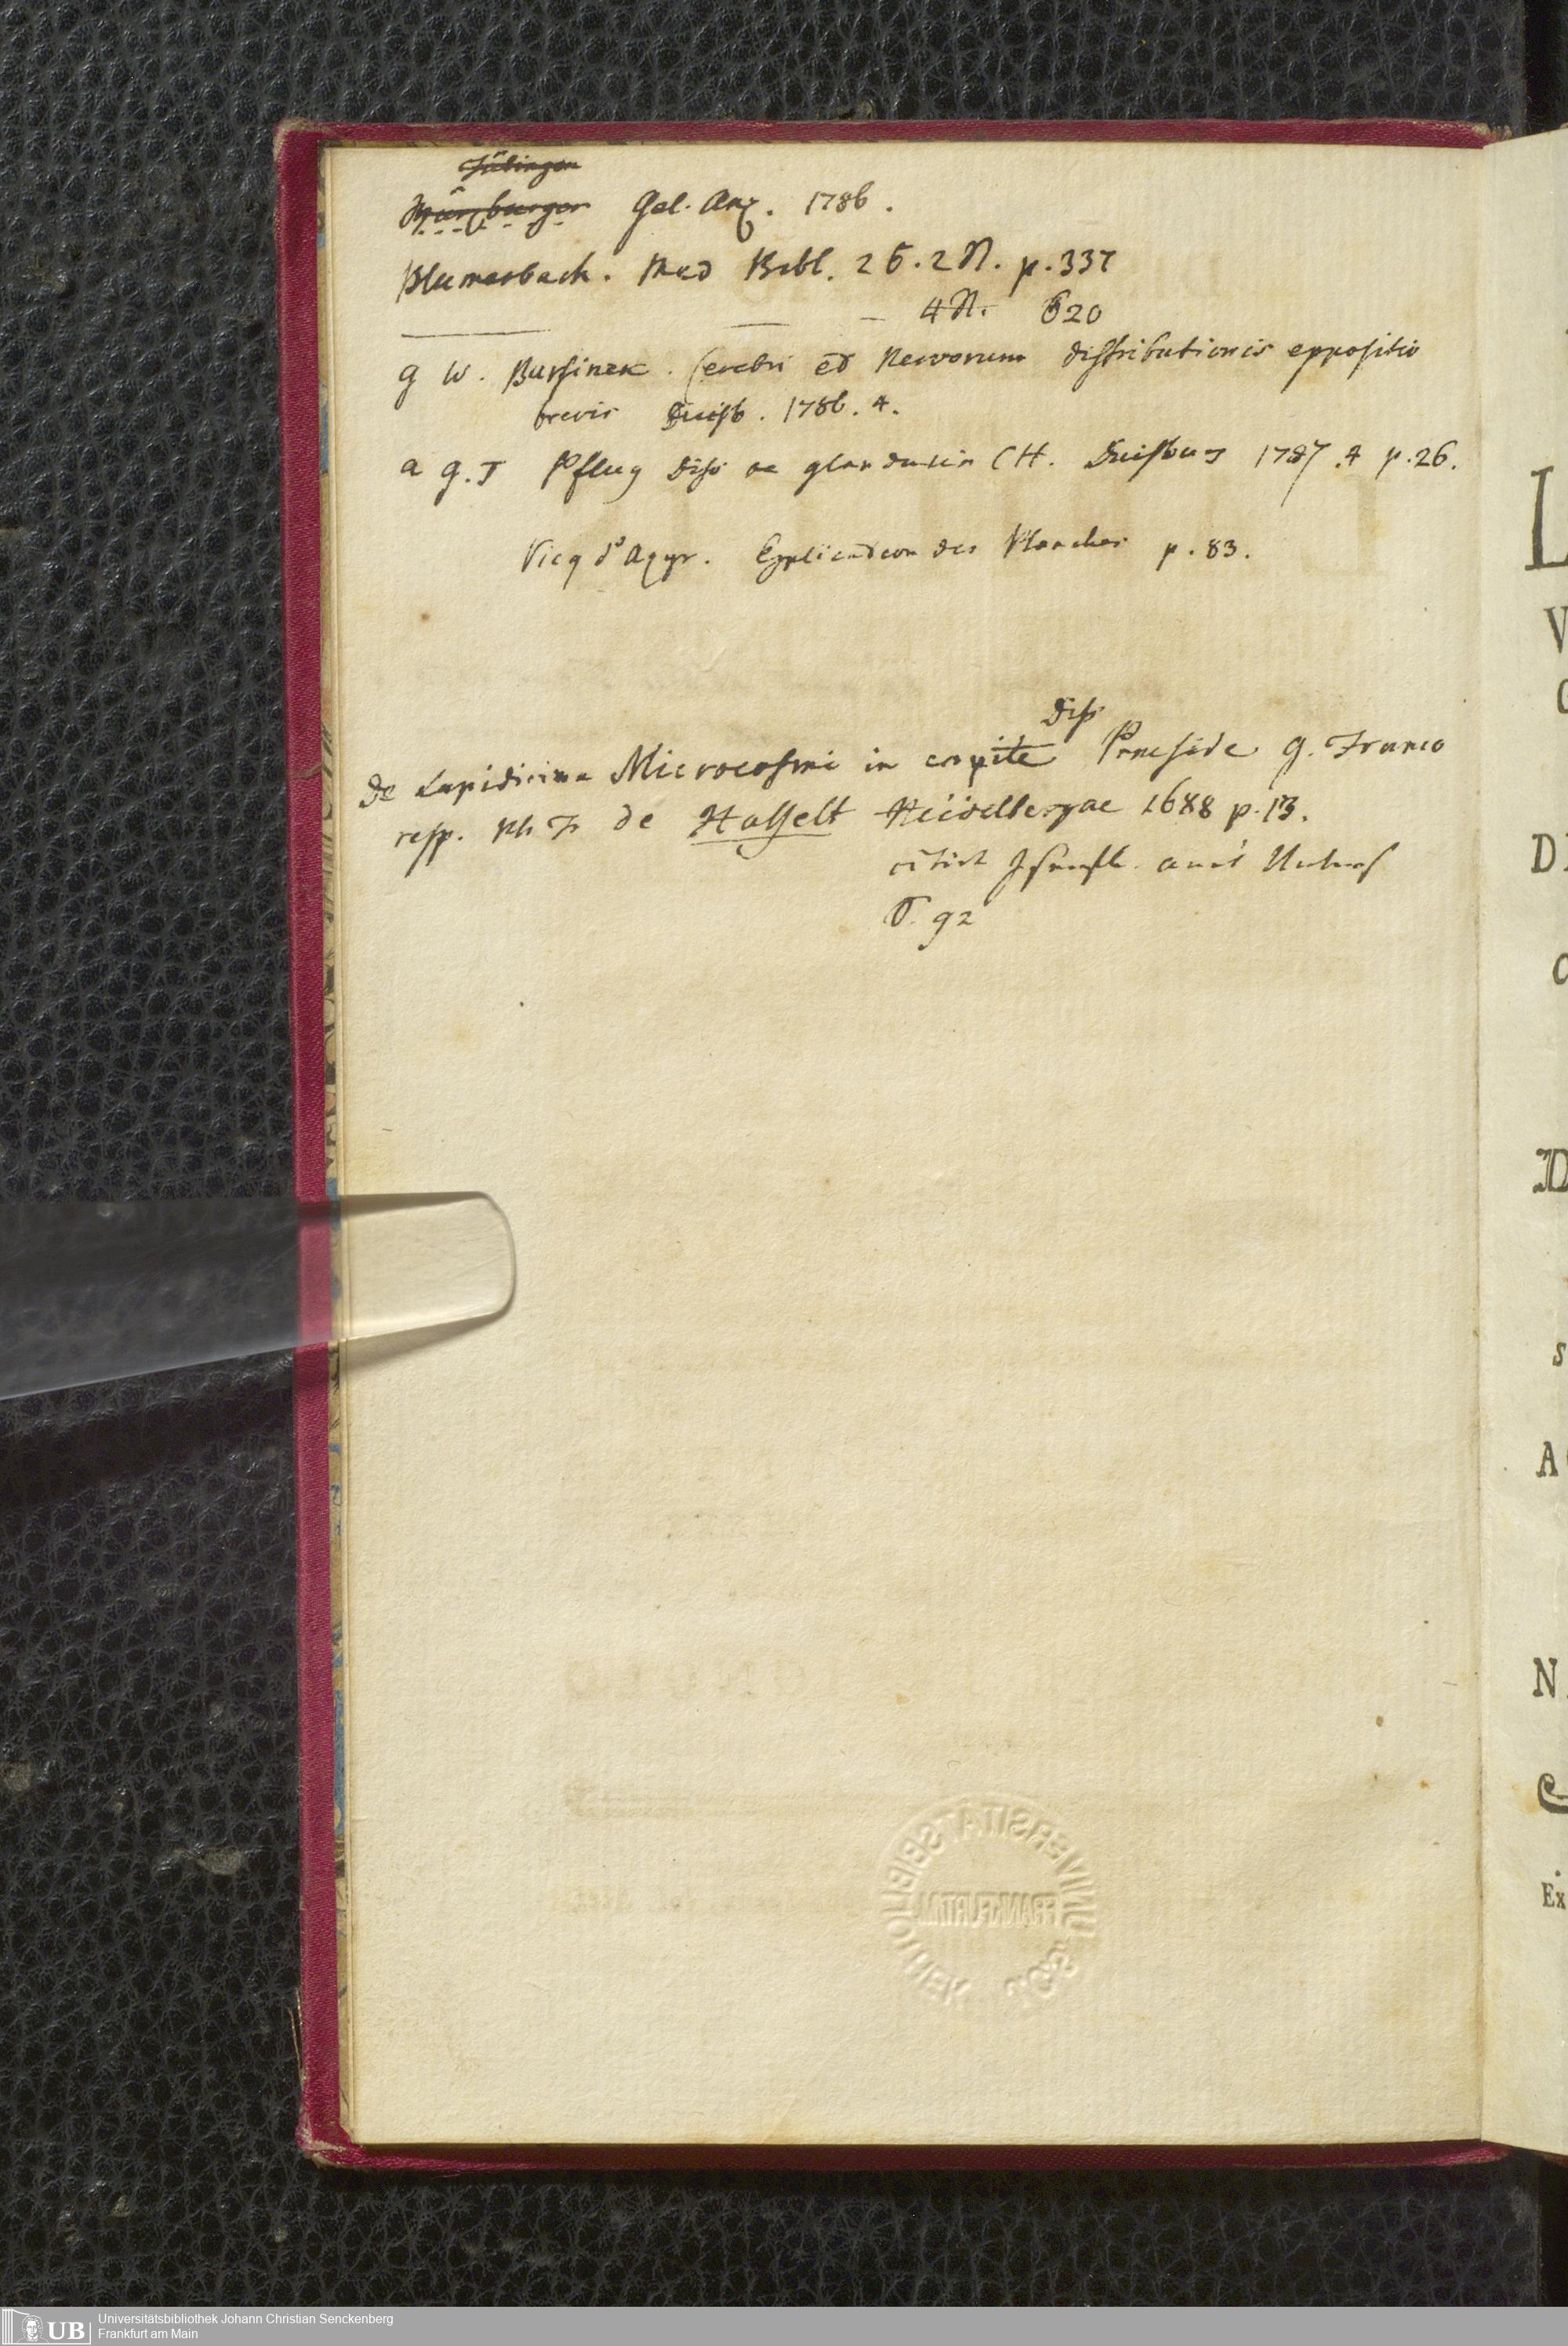 Tübingen
Würzburger Gel. Anz. 1786.
Blumenbach. Med Bibl. 2 B. 2 St. p. 337
— — — 4 St. 620
G W. Cerebri et Nervorum distributionis expositio
brevis Duisb. 1786. 4.
a G. J Pflug diss de glandula CH. Duisburg 1787. 4 p. 26.
Vicq d'Azyr. Explication des Planches p. 83.
Diss
de Lapidicina Microcosmi in capite Praeside G. Franco
resp. Ph Fr de Hasselt Heidelbergae 1688 p. 13.
citirt
S. 92
UNIVERSITÄTSBIBLIOTHEK
FRANKFURT A.M.
L
V
D
N
Ex
UB
Universitätsbibliothek Johann Christian Senckenberg
Frankfurt am Main